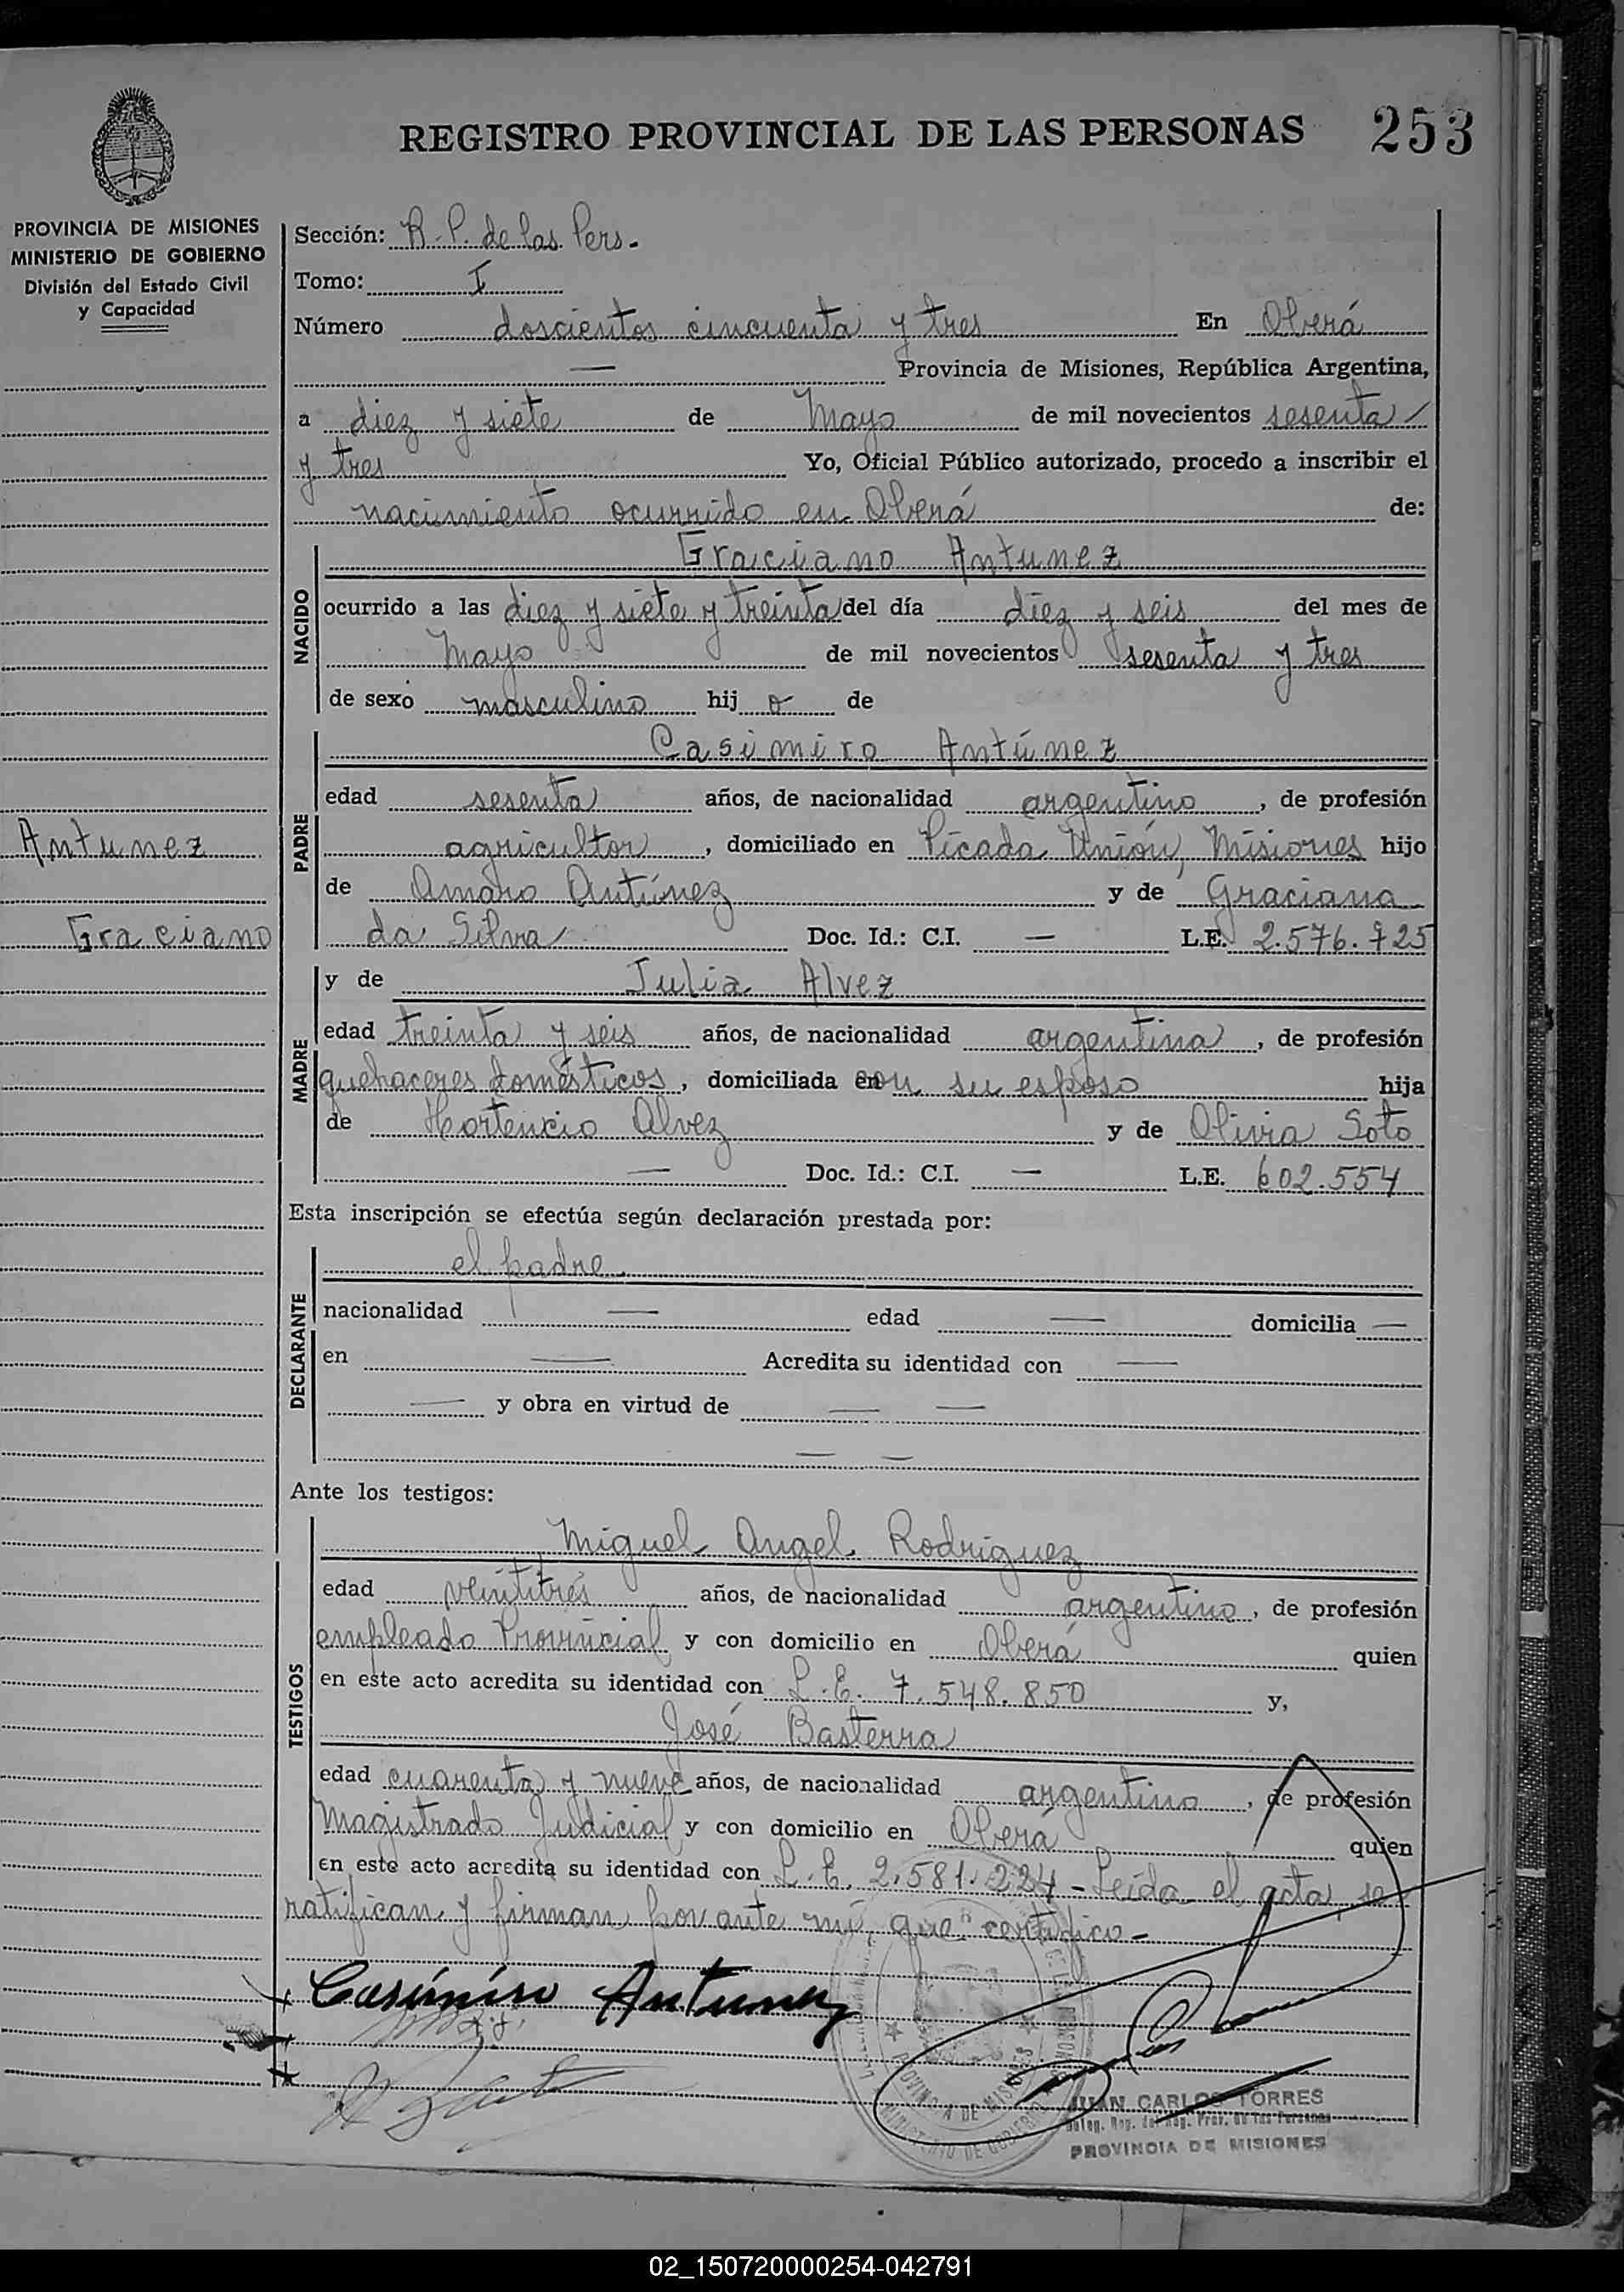 REGISTRO PROVINCIAL DE LAS PERSONAS 253
PROVINCIA DE MISIONES
MINISTERIO DE GOBIERNO
División del Estado Civil
y Capacidad
Sección: R.P. de las Pers.
Tomo: I
Número doscientos cincuenta y tres En Oberá
— Provincia de Misiones, República Argentina,
a diez y siete de Mayo de mil novecientos sesenta
y tres Yo, Oficial Público autorizado, procedo a inscribir el
nacimiento ocurrido en Oberá de:
NACIDO
Graciano Antunez
ocurrido a las diez y siete y treinta del día diez y seis del mes de
Mayo de mil novecientos sesenta y tres
de sexo masculino hij o de
PADRE
Casimiro Antúnez
edad sesenta años, de nacionalidad argentino, de profesión
agricultor, domiciliado en Picada Unión, Misiones hijo
de Amaro Antúnez y de Graciana
da Silva Doc. Id.: C.I. — L.E. 2.576.725
Antunez
Graciano
MADRE
y de Julia Alvez
edad treinta y seis años, de nacionalidad argentina, de profesión
quehaceres domésticos, domiciliada con su esposo hija
de Hortencio Alvez y de Olivia Soto
— Doc. Id.: C.I. — L.E. 602.554
Esta inscripción se efectúa según declaración prestada por:
DECLARANTE
el padre
nacionalidad — edad — domicilia —
en — Acredita su identidad con —
— y obra en virtud de — —
— —
Ante los testigos:
TESTIGOS
Miguel Angel Rodriguez
edad veintitrés años, de nacionalidad argentino, de profesión
empleado Provincial y con domicilio en Oberá quien
en este acto acredita su identidad con L.E. 7.548.850 y,
José Basterra
edad cuarenta y nueve años, de nacionalidad argentino, de profesión
Magistrado Judicial y con domicilio en Oberá quien
en este acto acredita su identidad con L.E. 2.581.224 - Leída el acta, se
ratifican y firman por ante mí, que certifico -
Casimiro Antunez
PROVINCIA DE MISIONES
MINISTERIO DE GOBIERNO
JUAN CARLOS TORRES
PROVINCIA DE MISIONES
02_150720000254-042791